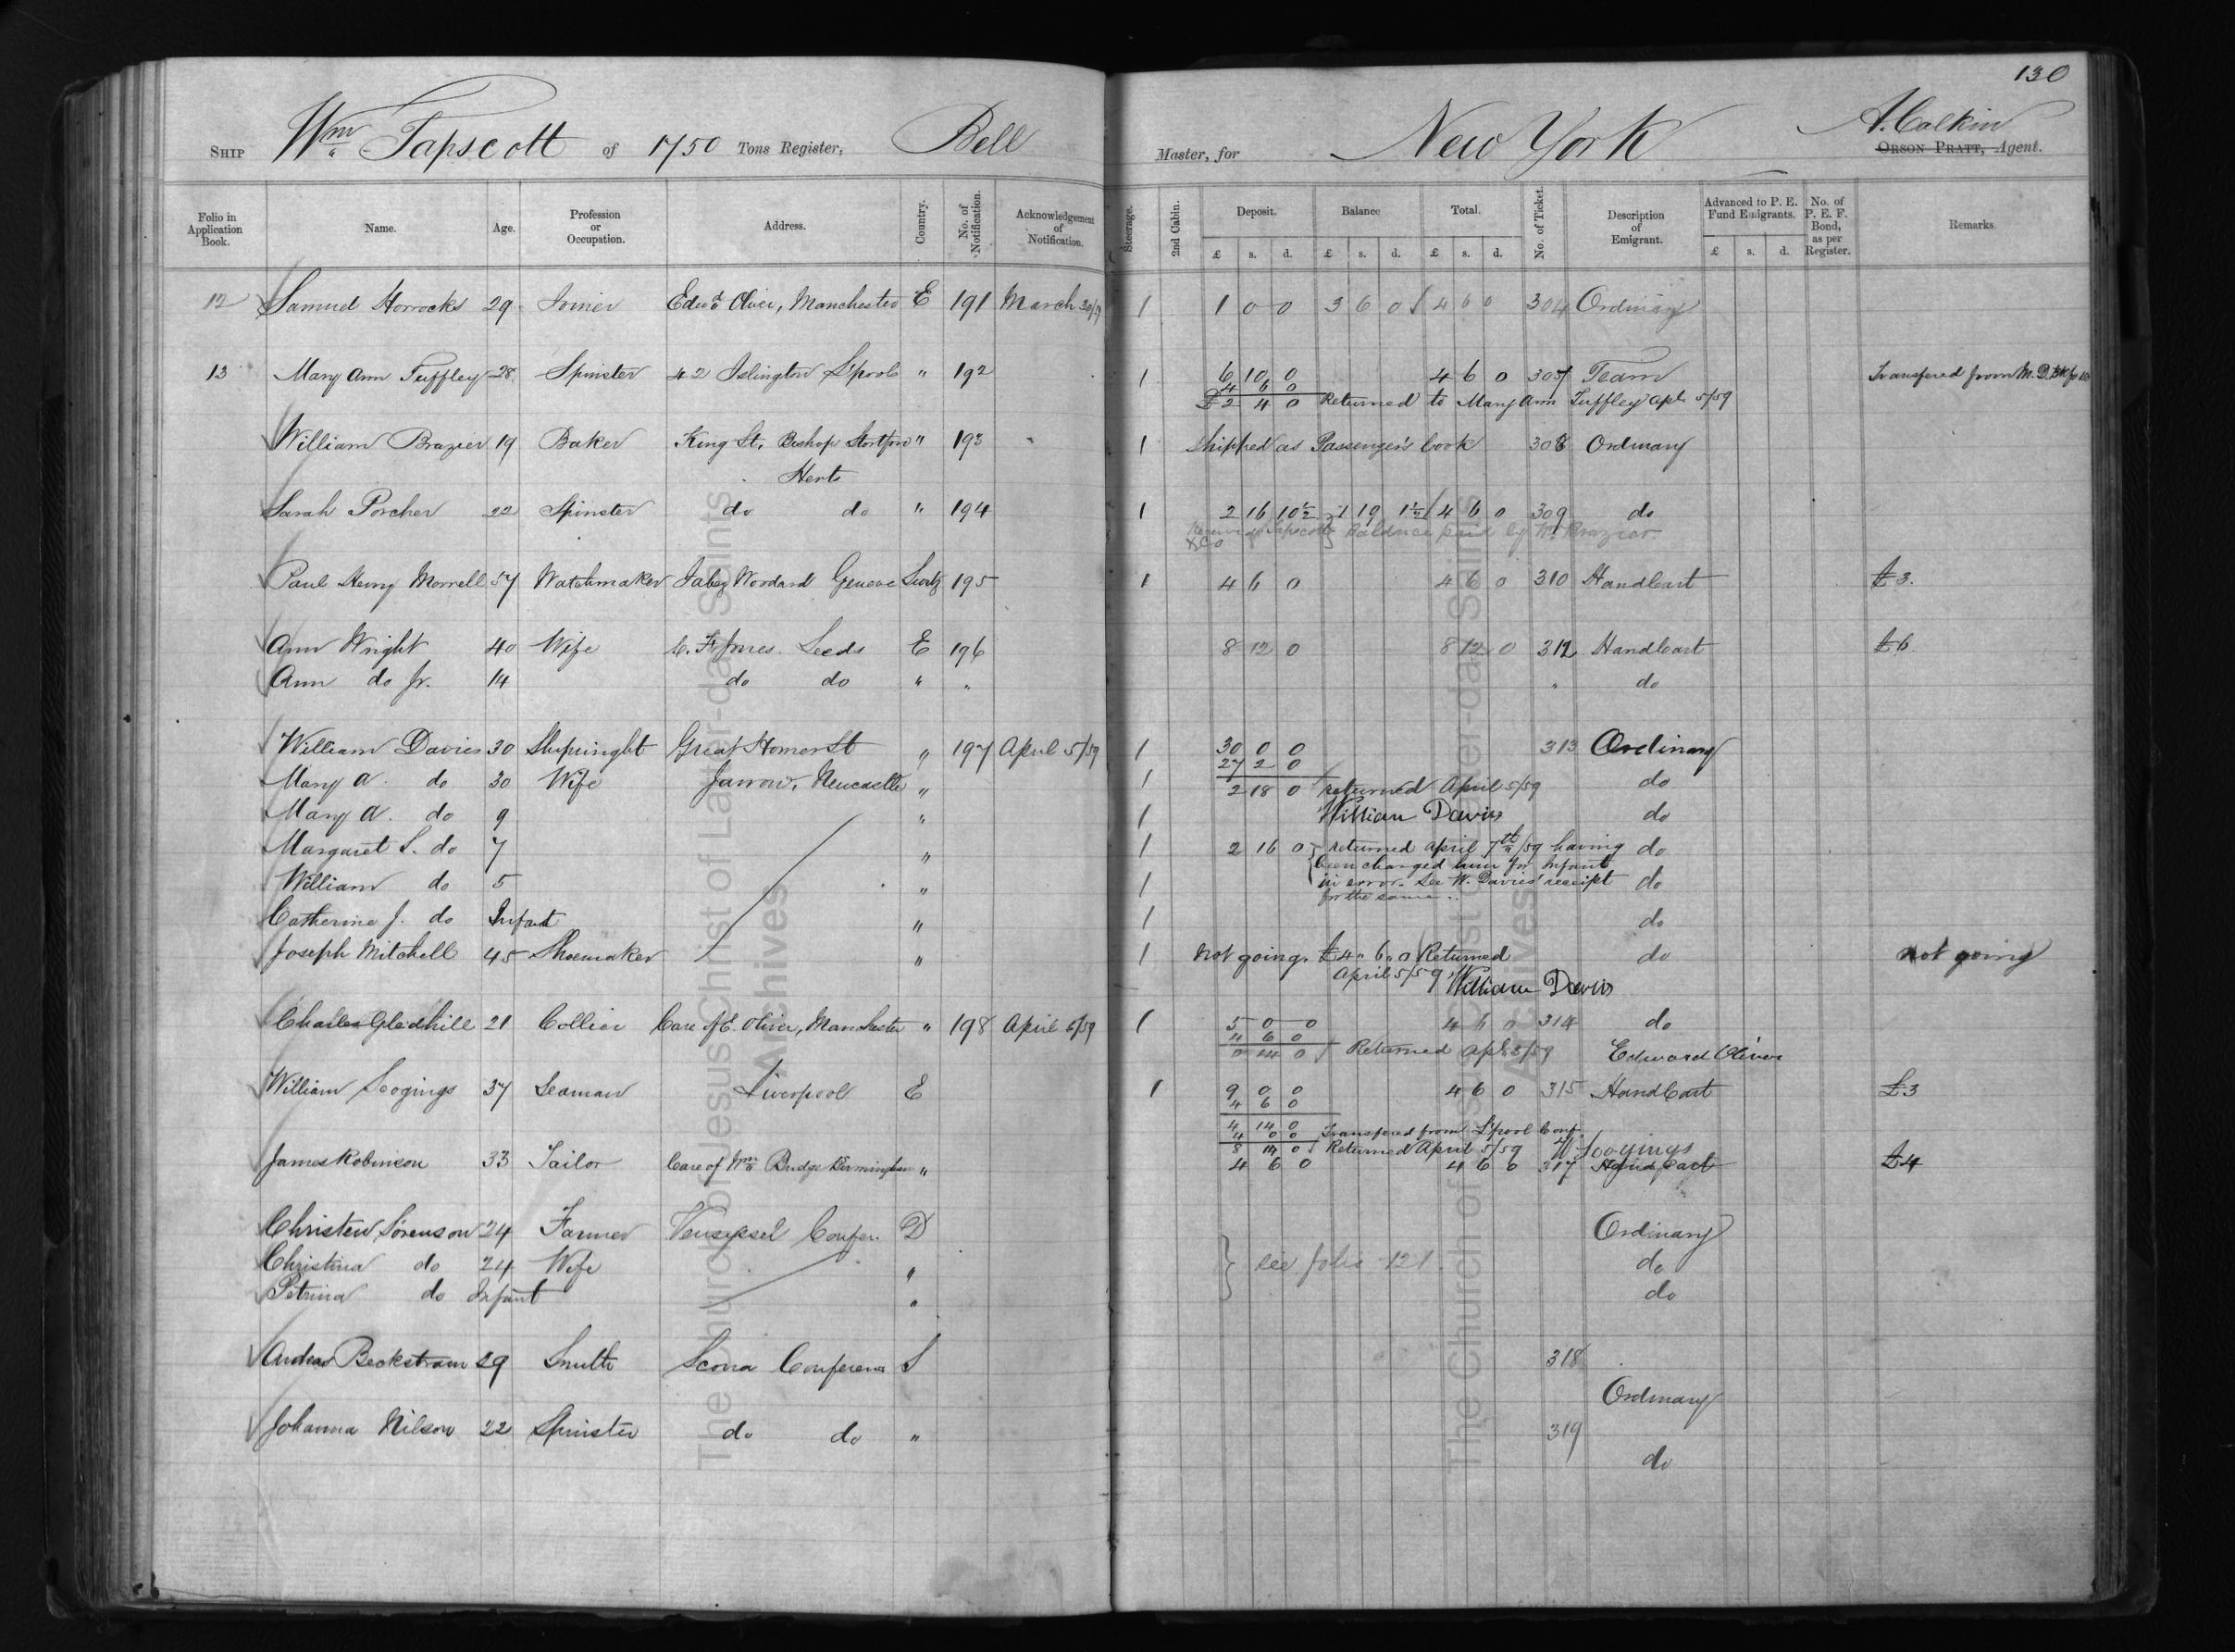 130
Ship Wm Tapscott of 1750 Tons Register, Bell Master, for New York A. Calkin
Orson Pratt, Agent.
Folio in Application Book. Name. Age. Profession or Occupation. Address. Country. No. of Notification. Acknowledgement of Notification. Steerage. 2nd Cabin. Deposit. Balance Total. No. of Ticket. Description of Emigrant. Advanced to P. E. Fund Emigrants. No. of P. E. F. Bond, as per Register. Remarks
£ s. d. £ s. d. £ s. d. £ s. d.
12 Samuel Horrocks 29 Joiner Edwd Oliver, Manchester E 191 March 30/59 1 1 0 0 3 6 0 4 6 0 304 Ordinary
13 Mary Ann Tuffley 28 Spinster 42 Islington L'pool " 192 1 6 10 0 4 6 0 307 Team Transfered from M. D.
4 6 0
£2 4 0 Returned to Mary Ann Tuffley Apl 5/59
William Brazier 19 Baker King St, Bishop Stortford " 193 1 Shipped as Passenger's Cook 308 Ordinary
Herts
Sarah Porcher 22 Spinster do do " 194 1 2 16 10½ 1 19 1½ 4 6 0 309 do
Tapscott & Co Balance paid by W. Brazier
Paul Henry Morrell 57 Watchmaker Jabez Woodard Geneve Switz 195 1 4 6 0 4 6 0 310 HandCart £3.
Ann Wright 40 Wife C. F. Jones Leeds E 196 8 12 0 8 12 0 312 HandCart £6
Ann do Jr. 14 do do " " " do
William Davies 30 Shipwright Great Homer St " 197 April 5/59 1 30 0 0 313 Ordinary
27 2 0
Mary A. do 30 Wife Jarrow, Newcastle " 1 2 18 0 returned April 5/59 do
Mary A. do 9 " 1 William Davies do
Margaret S. do 7 " 1 2 16 0 returned April 7th/59 having do
been changed him for Infant
William do 5 " 1 in error. See W. Davies' receipt do
for the same.
Catherine J. do Infant " 1 do
Joseph Mitchell 45 Shoemaker " 1 Not going. £4 " 6 " 0 Returned do not going
April 5/59 William Davies
Charles Gledhill 21 Collier Care of E. Oliver, Manchester " 198 April 6/59 1 5 0 0 4 6 0 314 do
4 6 0
0 14 0 Returned Apl 5/59 Edward Oliver
William Scogings 37 Seaman Liverpool E 1 9 0 0 4 6 0 315 HandCart £3
4 6 0
4 14 0
4 0 0 Transfered from L'pool Conf.
8 14 0 Returned April 5/59 W Scogings
James Robinson 33 Tailor Care of Wm Budge Birmingham " 4 6 0 4 6 0 317 Hand Cart £4
Christen Sörenson 24 Farmer Vensyssel Confer. D Ordinary
Christina do 24 Wife " see folio 121 do
Petrina do Infant " do
Andeas Beckstram 29 Smith Scona Conference S 318
Ordinary
Johanna Nilson 22 Spinster do do " 319
do
The Church of Jesus Christ of Latter-day Saints
Archives
The Church of Jesus Christ of Latter-day Saints
Archives